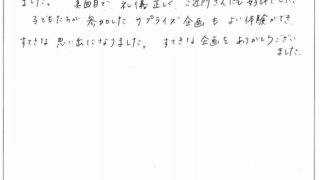 ました。 真面目で 礼儀正しく、ご近所さんにも 好評でした。
子どもたちが 参加した サプライズ企画 も よい体験ができ、
すてきな 思い出になりました。 すてきな 企画を ありがとうござい
ました。